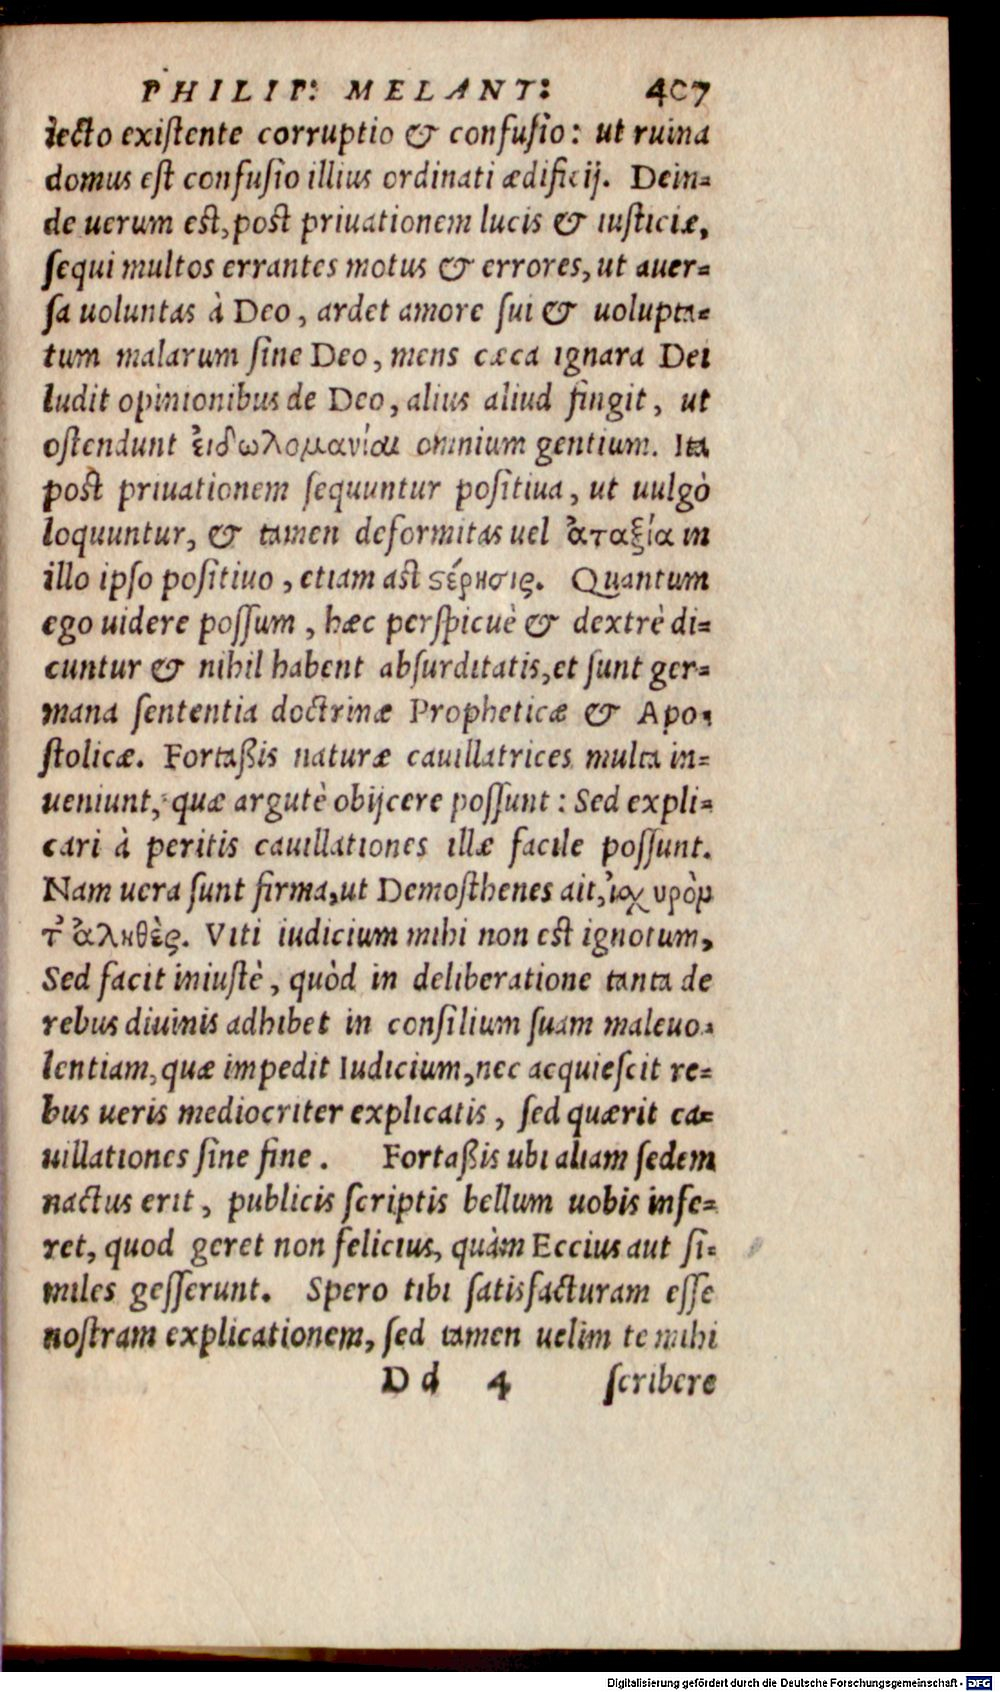 PHILIP: MELANT: 407
iecto existente corruptio & confusio: ut ruina
domus est confusio illius ordinati ædificij. Dein=
de uerum est, post priuationem lucis & iusticiæ,
sequi multos errantes motus & errores, ut auer=
sa uoluntas à Deo, ardet amore sui & uolupta=
tum malarum sine Deo, mens cæca ignara Dei
ludit opinionibus de Deo, alius aliud fingit, ut
ostendunt ἐιδωλομανίαι omnium gentium. Ita
post priuationem sequuntur positiua, ut uulgò
loquuntur, & tamen deformitas uel ἀταξία in
illo ipso positiuo, etiam ast ςέρησις. Quantum
ego uidere possum, hæc perspicuè & dextrè di=
cuntur & nihil habent absurditatis, et sunt ger=
mana sententia doctrinæ Propheticæ & Apo=
stolicæ. Fortaßis naturæ cauillatrices multa in=
ueniunt, quæ argutè obijcere possunt: Sed expli=
cari à peritis cauillationes illæ facile possunt.
Nam uera sunt firma, ut Demosthenes ait, ἰσχυρὸμ
τ' ἀληθὲς. Viti iudicium mihi non est ignotum,
Sed facit iniustè, quòd in deliberatione tanta de
rebus diuinis adhibet in consilium suam maleuo=
lentiam, quæ impedit Iudicium, nec acquiescit re=
bus ueris mediocriter explicatis, sed quærit ca=
uillationes sine fine. Fortaßis ubi aliam sedem
nactus erit, publicis scriptis bellum uobis infe=
ret, quod geret non felicius, quàm Eccius aut si=
miles gesserunt. Spero tibi satisfacturam esse
nostram explicationem, sed tamen uelim te mihi
Dd 4 scribere
Digitalisierung gefördert durch die Deutsche Forschungsgemeinschaft - DFG